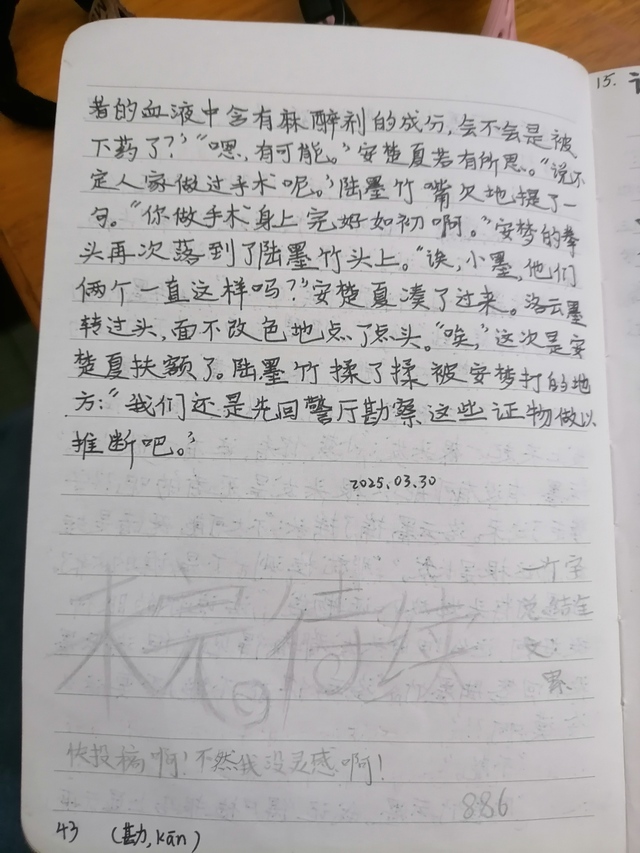 者的血液中含有麻醉剂的成分,会不会是被
下药了?”“嗯,有可能。”安楚夏若有所思。“说不
定人家做过手术呢。”陆墨竹嘴欠地提了一
句。“你做手术身上完好如初啊。”安梦的拳
头再次落到了陆墨竹头上。“诶,小墨,他们
俩个一直这样吗?”安楚夏凑了过来。洛云墨
转过头,面不改色地点了点头。“唉,”这次是安
楚夏扶额了。陆墨竹揉了揉被安梦打的地
方:“我们还是先回警厅勘察这些证物做以
推断吧。”
2025.03.30
一个字
总结全
文
累
未完待续
快投稿啊!不然我没灵感啊!
886
43 (勘,kān)
15.